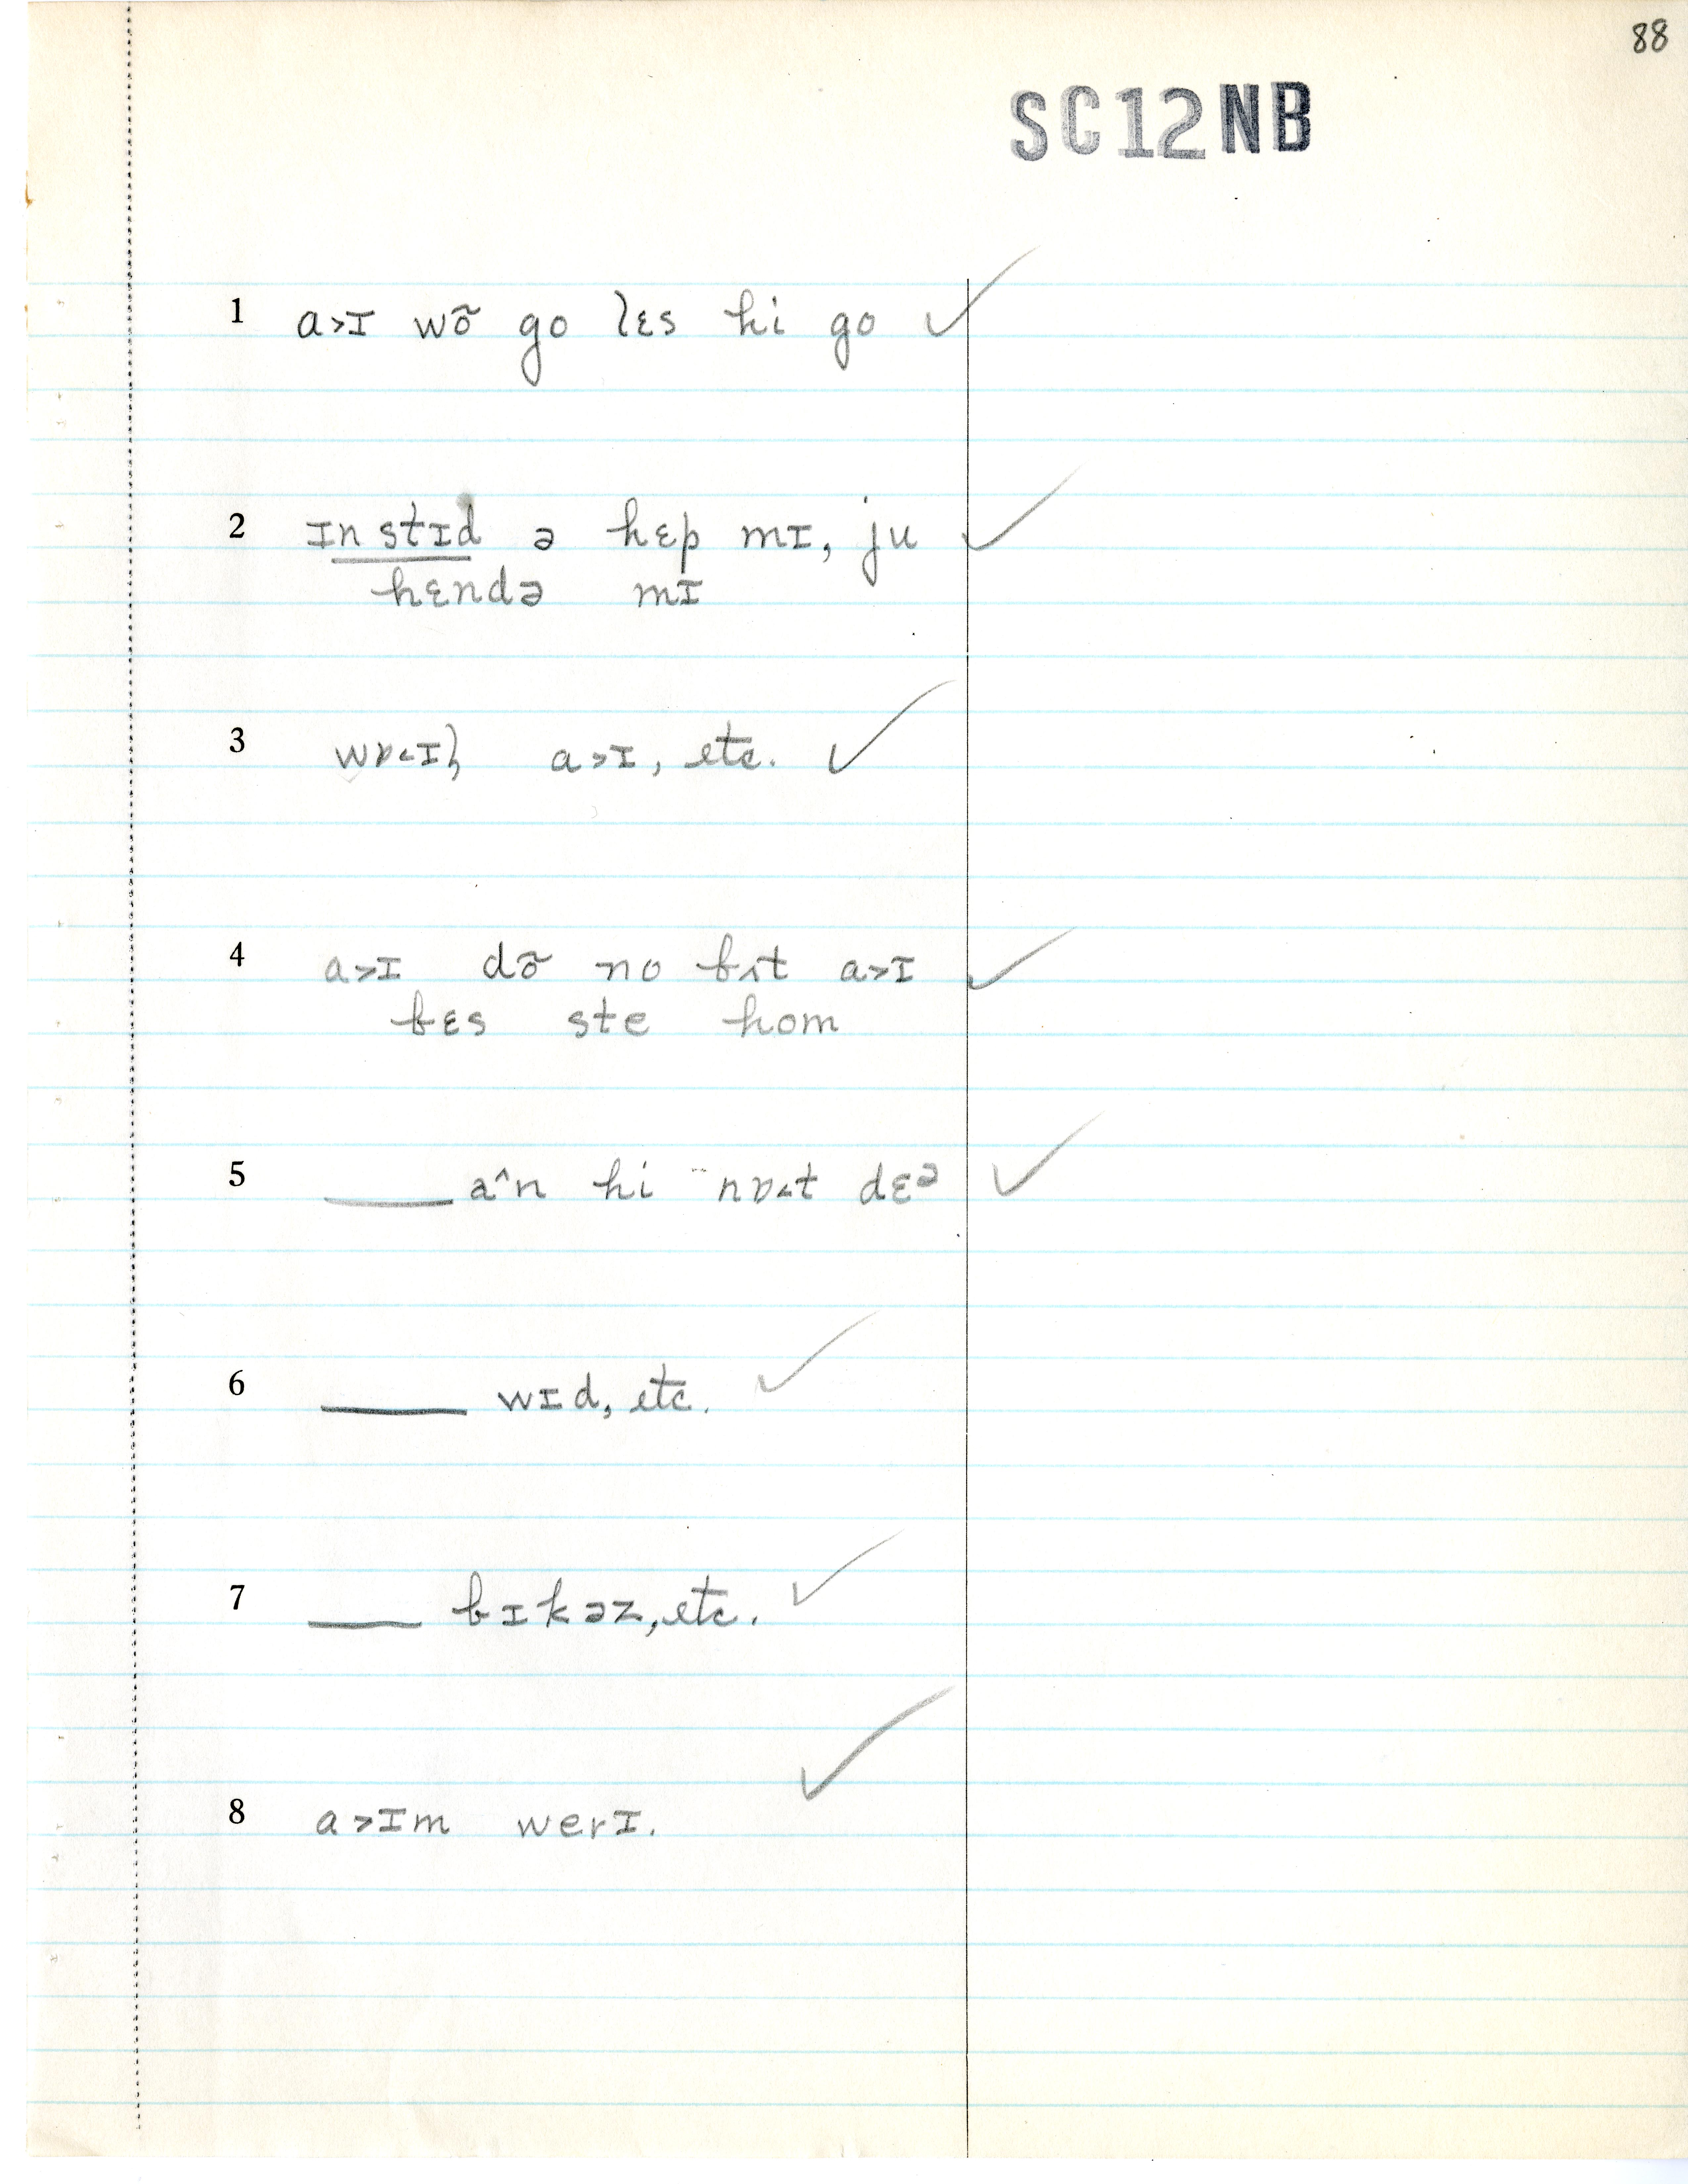 88
SC12NB
1 a>ɪ wõ go lɛs hi go ✓
2 ɪnstɪd ə hɛp mɪ, ju ✓
hɛndə mɪ
3 wɒ<ɪɫ a>ɪ, etc. ✓
4 a>ɪ dõ no bʌt a>ɪ ✓
bɛs ste hom
5 ____ a^n hi nɒ<t dɛə ✓
6 ____ wɪd, etc. ✓
7 ____ bɪkəz, etc. ✓
8 a>ɪm werɪ. ✓